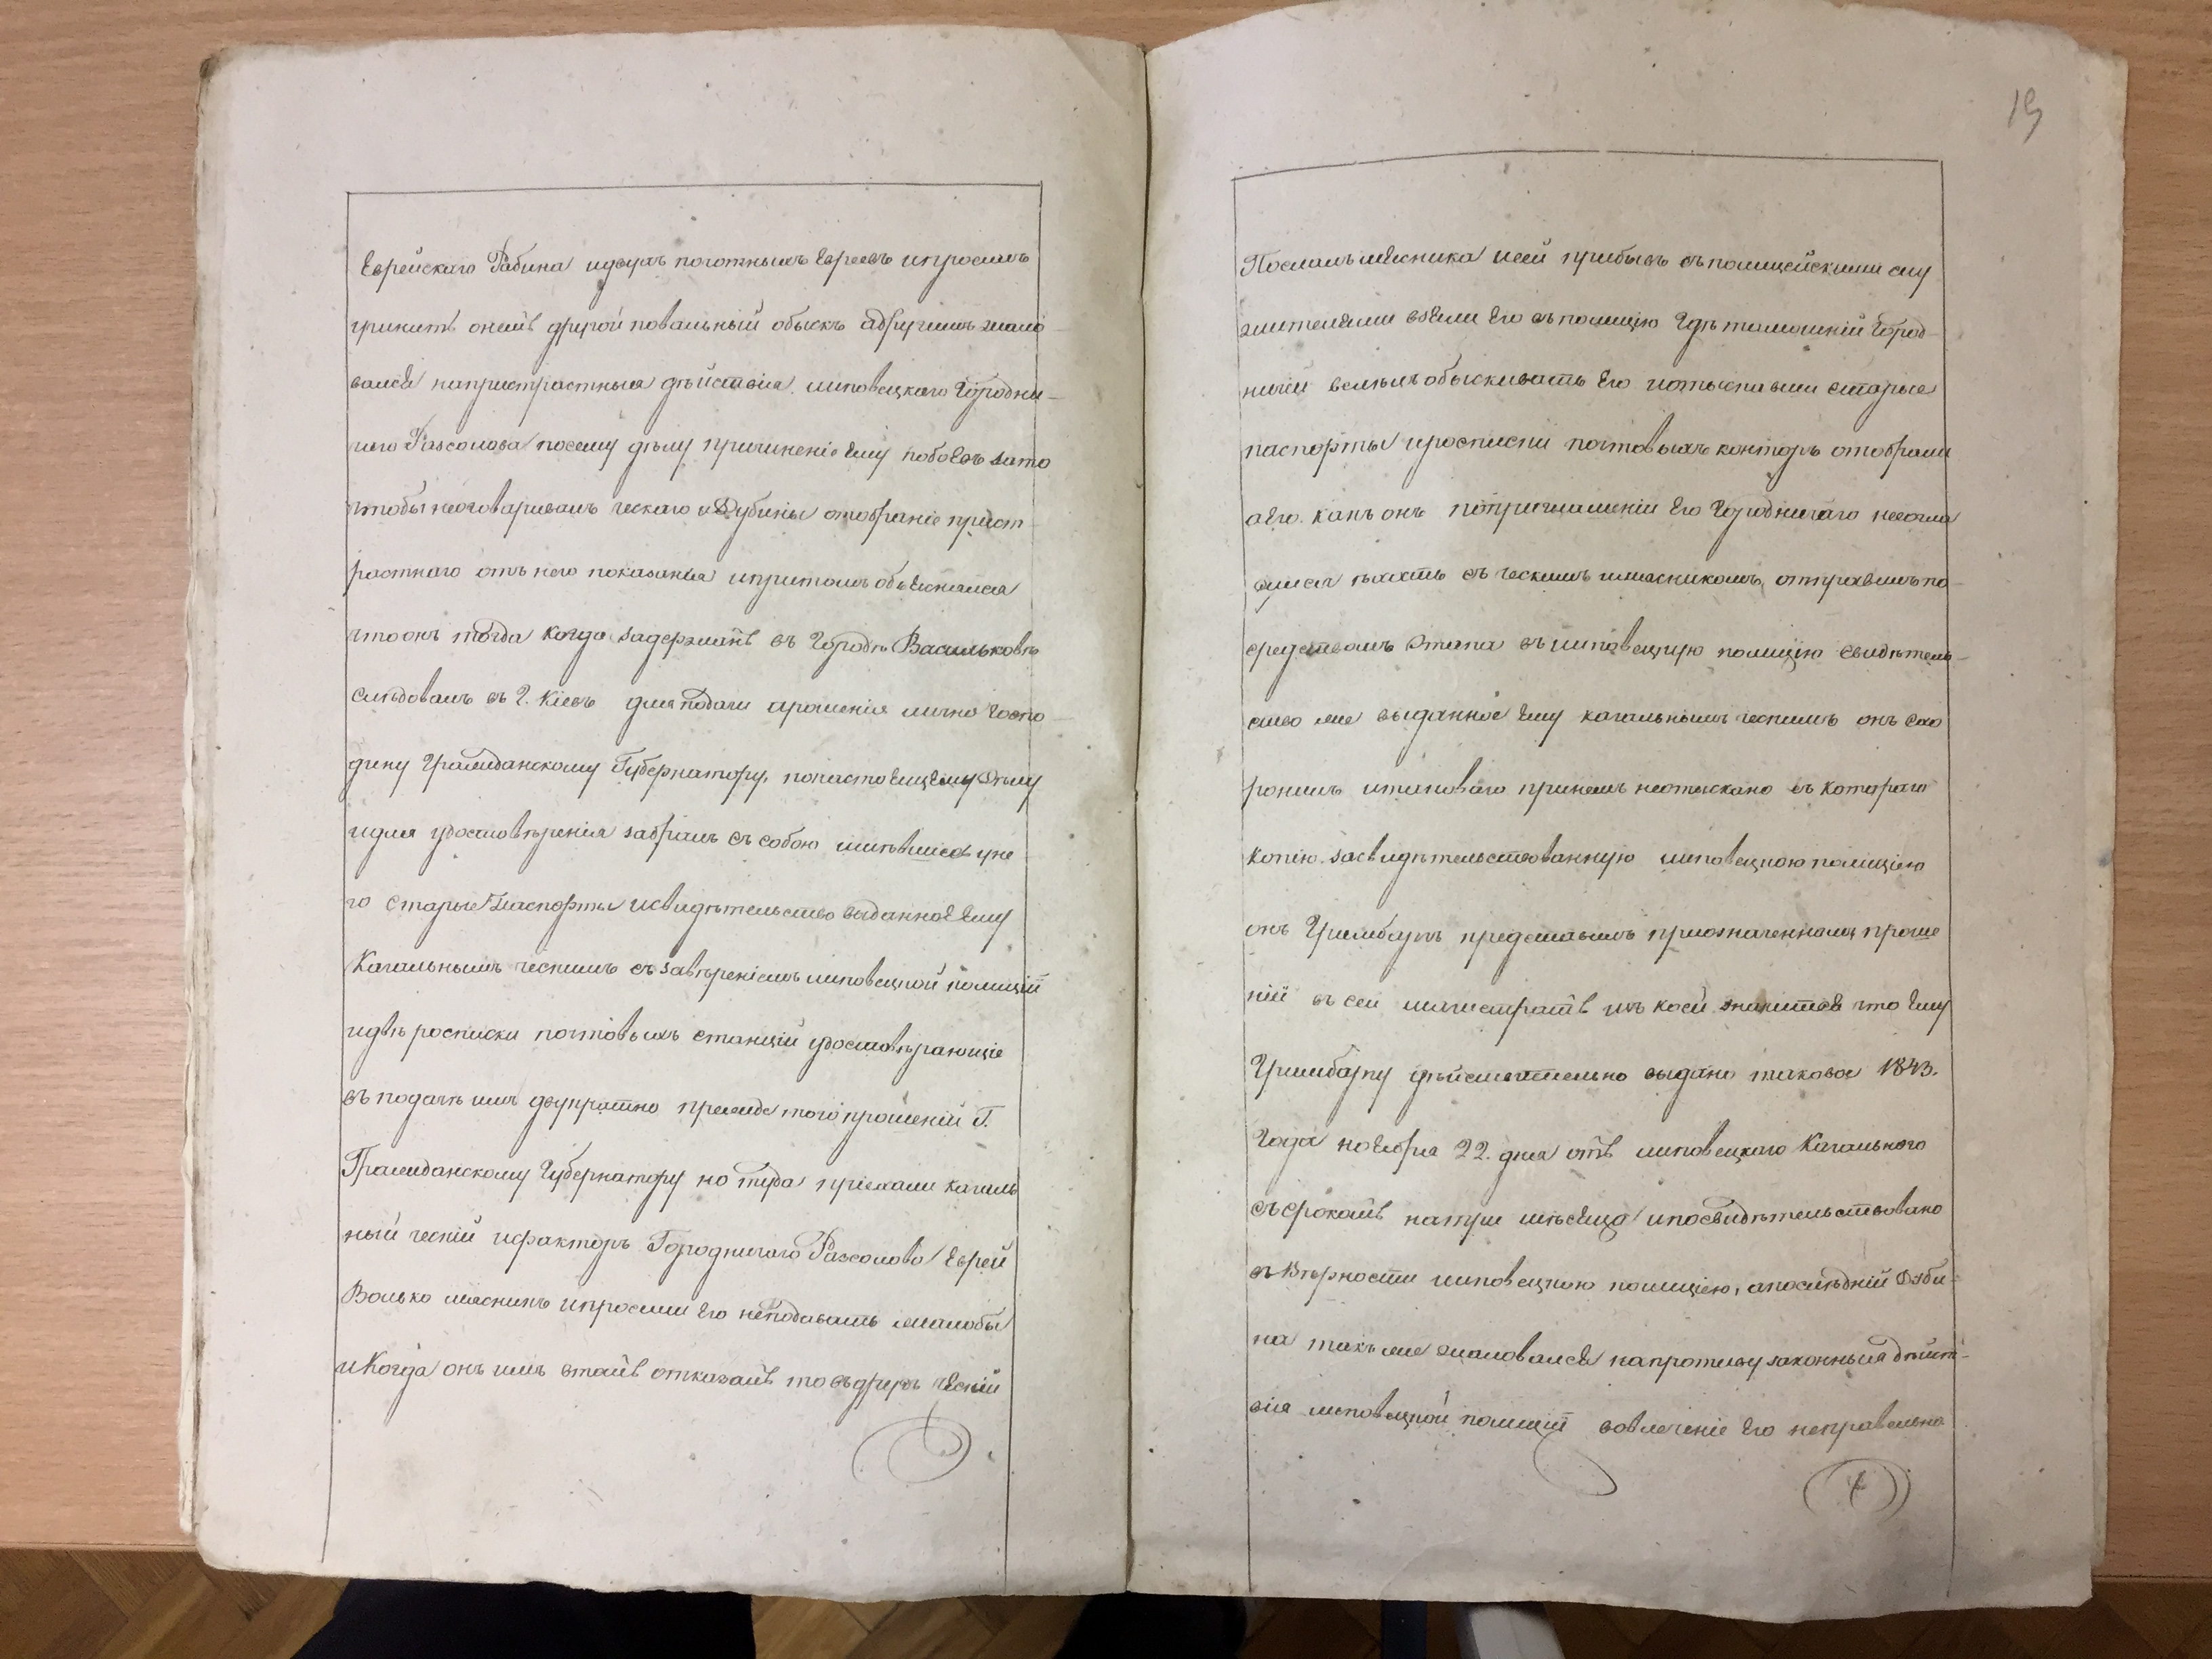 Еврейскаго Рабина идвухъ почотныхъ Евреевъ ипросилъ
учинить онемъ другой повальный обыскъ адругимъ жало-
вался напристрастныя дѣйствія липовецкаго Городни-
чаго Разсолова посему дѣлу причиненіе Ему побоевъ зато
чтобы неоговаривалъ ческаго и Дубины отобраніе прист-
растнаго отъ него показанія ипритомъ объяснялся
что онъ тогда когда задержанъ въ Городѣ Васильковѣ
слѣдовалъ въ Г. Кіевъ для подачи прошенія лично Госпо-
дину Гражданскому Губернатору, понастоящему Дѣлу
идля удостовѣренія забралъ съ собою имѣвшіеся уне
го старые Паспорты исвидѣтельство выданное Ему
Кагальнымъ ческимъ съ завѣреніемъ липовецкой полиціи
идвѣ росписки почтовыхъ станцій удостовѣряющіе
въ подачѣ имъ двукратно прежде того прошеній Г.
Гражданскому Губернатору но туда пріехали кагаль
ный ческій ифакторъ Городничаго Разсолова Еврей
Волько мясникъ ипросили Его неподавать жалобы
и Когда онъ имъ втомъ отказалъ то ческій
19
Послалъ мясника исей прибывъ съ полицейскими слу
жителями взяли Его въ полицію Гдѣ тамошній Город-
ничій велѣлъ обыскивать Его иотыскавши старые
паспорты иросписки почтовыхъ конторъ отобрали
а Его какъ онъ поприглашеніи Его Городничаго несогла
сился ѣхать съ ческимъ имясникомъ, отправилъ по-
средствомъ Этапа въ липовецкую полицію свидѣтель-
ство же выданное Ему кагальнымъ ческимъ онъ схо
ронилъ итаковаго принемъ неотыскано съ котораго
копію засвидѣтельствованную липовецкою полиціею
онъ Гринбарпъ представилъ приозначенномъ проше
ніи въ сей магистратъ изъ коей значится что Ему
Гринбарпу дѣйствительно выдано таковое 1843.
Года ноября 22. дня отъ липовецкаго Кагальнаго
съ срокомъ натри мѣсяца ипосвидѣтельствовано
въ вѣрности липовецкою полиціею, апослѣдній Дуби-
на такъ же жаловался напротиву законныя дѣйст-
вія липовецкой полиціи вовлеченіе Его неправельно